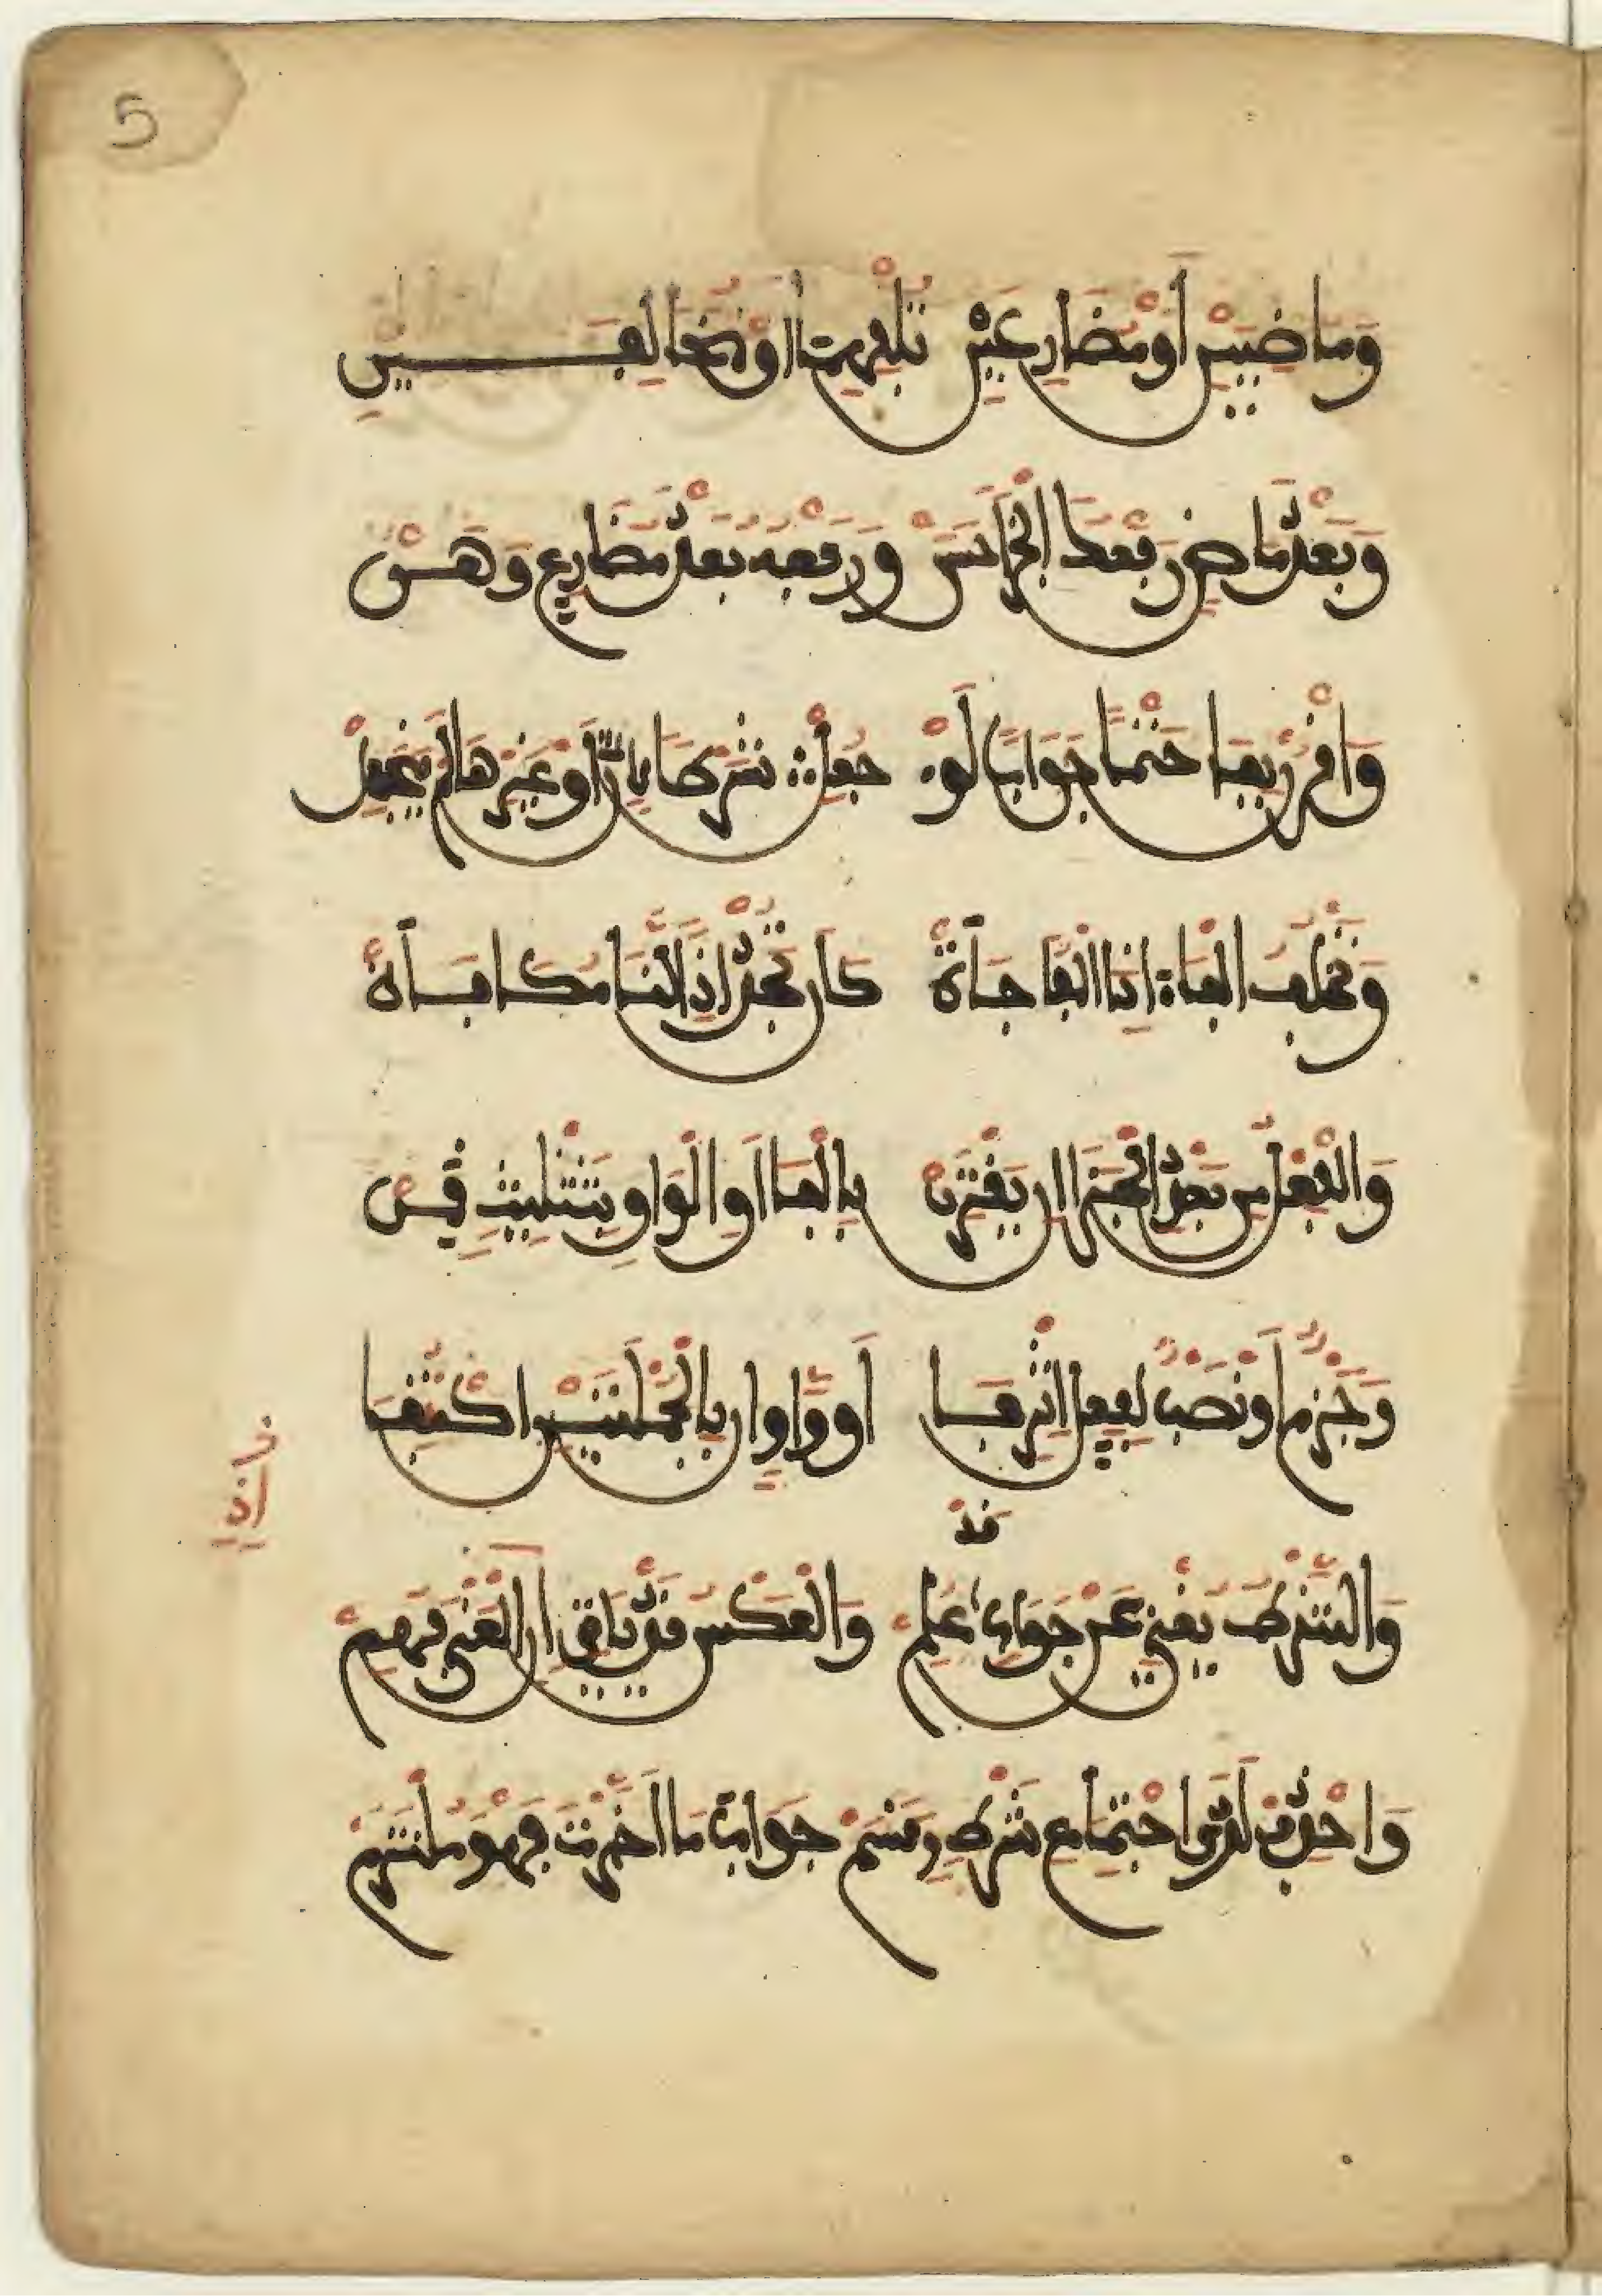 5
وَمَاضِيَيْنِ أَوْ مُضَارِعَيْنِ تُلْفِيهِمَا أَوْ مُتَخَالِفَيْنِ
وَبَعْدَ مَاضٍ رَفْعُكَ الْجَزَا حَسَنْ وَرَفْعُهُ بَعْدَ مُضَارِعٍ وَهَنْ
وَاقْرُنْ بِفَا حَتْمًا جَوَابًا لَوْ جُعِلْ شَرْطًا لِإِنْ أَوْ غَيْرِهَا لَمْ يَنْجَعِلْ
وَتَخْلُفُ الْفَاءَ إِذَا الْمُفَاجَأَةْ كَإِنْ تَجُدْ إِذَا لَنَا مُكَافَأَةْ
وَالْفِعْلُ مِنْ بَعْدِ الْجَزَا إِنْ يَقْتَرِنْ بِالْفَا أَوِ الْوَاوِ بِتَثْلِيثٍ قَمِنْ
وَجَزْمٌ أَوْ نَصْبٌ لِفِعْلٍ إِثْرَ فَا أَوْ وَاوٍ إِنْ بِالْجُمْلَتَيْنِ اكْتُنِفَا
قَدْ
وَالشَّرْطُ يُغْنِي عَنْ جَوَابٍ عُلِمْ وَالْعَكْسُ قَدْ يَأْتِي إِنِ الْمَعْنَى فُهِمْ
وَاحْذِفْ لَدَى اجْتِمَاعِ شَرْطٍ وَقَسَمْ جَوَابَ مَا أَخَّرْتَ فَهْوَ مُلْتَزَمْ